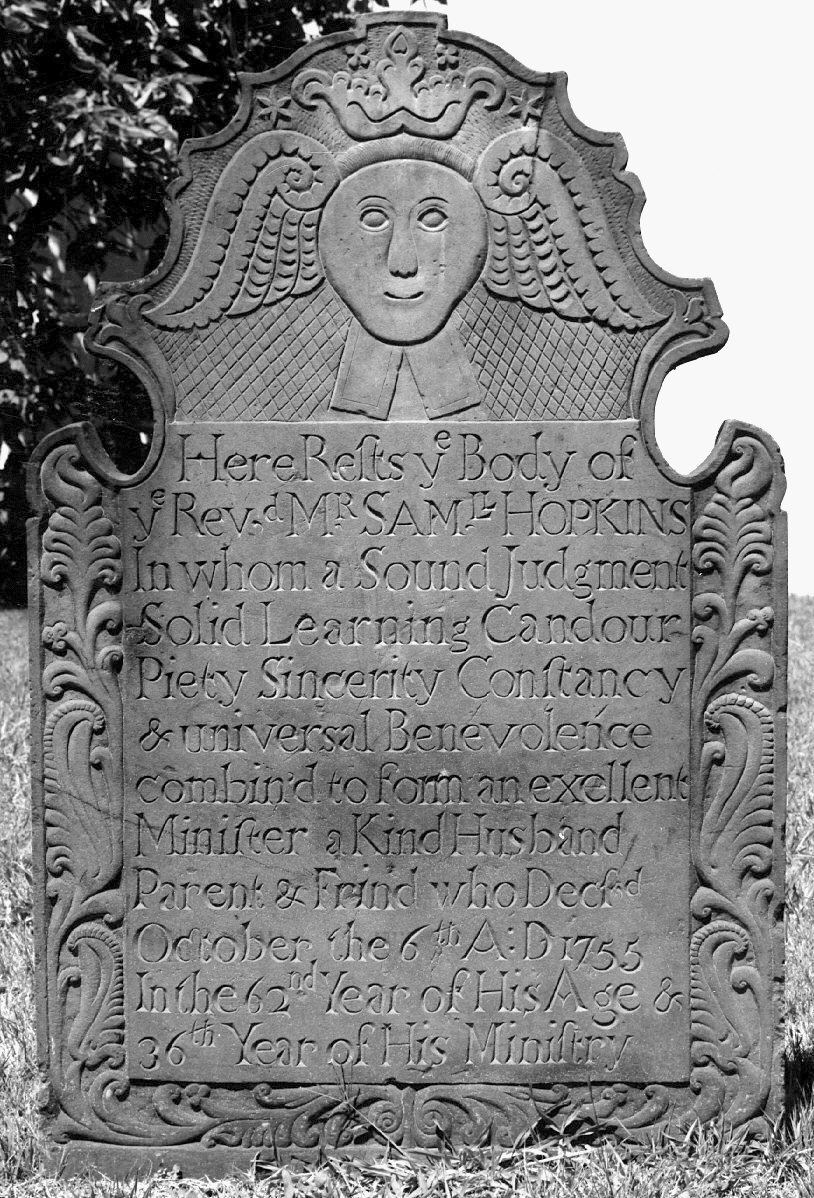 Here Reſts yᵉ Body of
yᵉ Rev.ᵈ Mᴿ SAMˡˡ HOPKINS
In whom a Sound Judgment
Solid Learning Candour
Piety Sincerity Conſtancy
& universal Benevolence
combin'd to form an exellent
Miniſter a Kind Husband
Parent & Frind who Decſ'd
October the 6ᵗʰ A:D 1755
In the 62ⁿᵈ Year of His Age &
36ᵗʰ Year of His Miniſtry